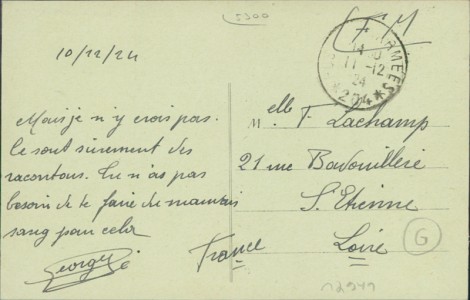 5300
F M
10/12/24
ARMÉES
14
11-12
24
*204*
Mais je n'y crois pas.
Ce sont surement des
racontars. Tu n'as pas
besoin de te faire du mauvais
sang pour cela
Georges
Melle F. Lachamp
21 rue Badouillere
St. Etienne
Loire
France
G
12949